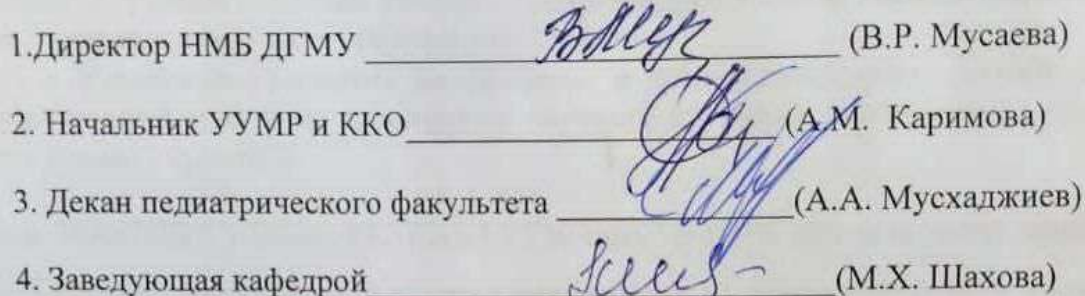 1.Директор НМБ ДГМУ (В.Р. Мусаева)
2. Начальник УУМР и ККО (А.М. Каримова)
3. Декан педиатрического факультета (А.А. Мусхаджиев)
4. Заведующая кафедрой (М.Х. Шахова)